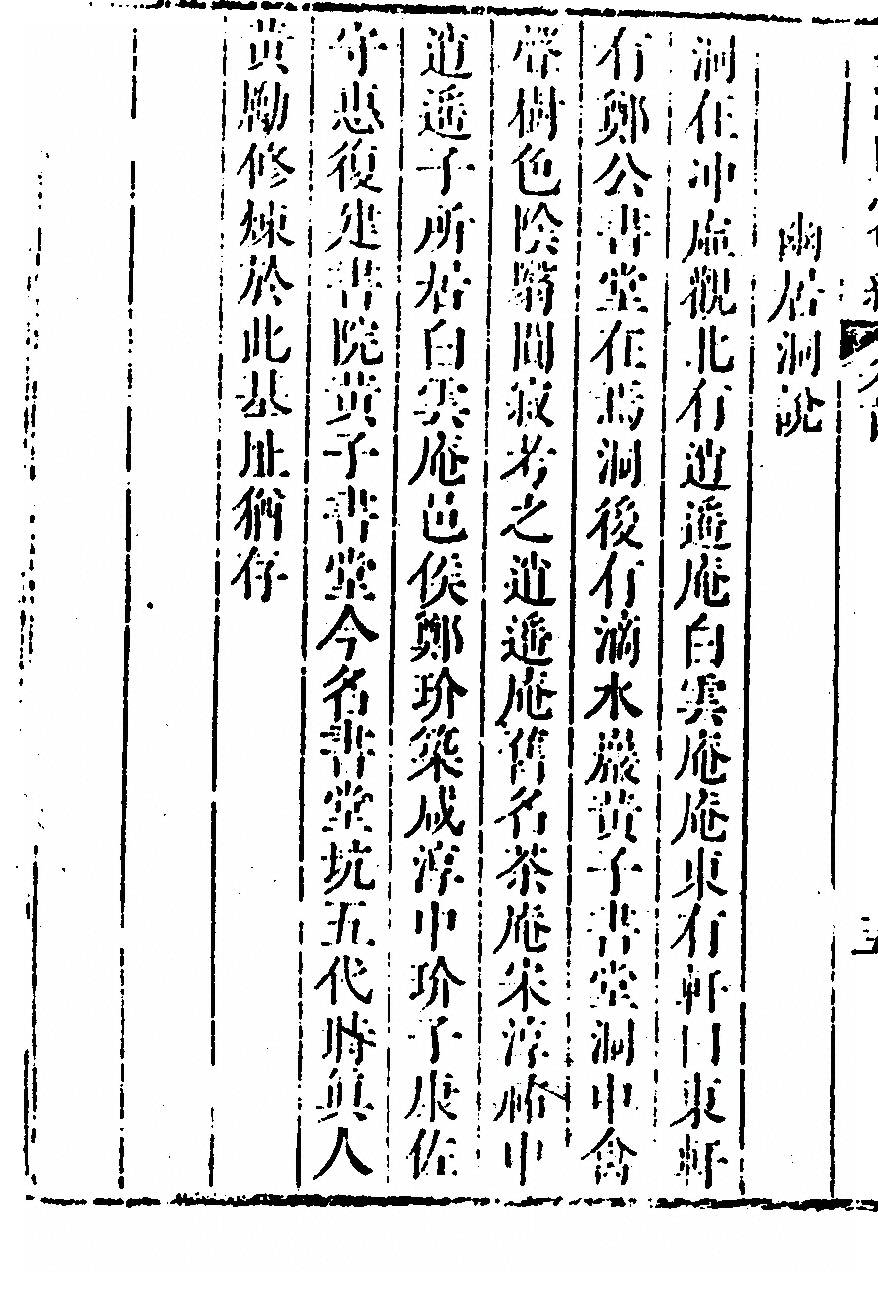 幽居洞說
洞在冲虛觀北有逍遥庵白雲庵庵東有軒曰東軒
有鄭公書堂在焉洞後有滴水巖黄子書堂洞中禽
聲樹色陰翳閴寂考之逍遥庵舊名茶庵宋淳祐中
逍遥子所居白雲庵邑侯鄭玠築咸淳中玠子康佐
守惠復建書院黄子書堂今名書堂坑五代時眞人
黄勵修煉於此基址猶存